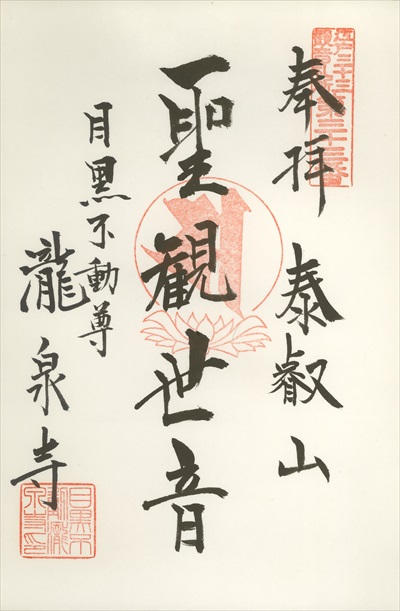 奉拝 泰叡山
聖観世音
目黒不動尊
瀧泉寺